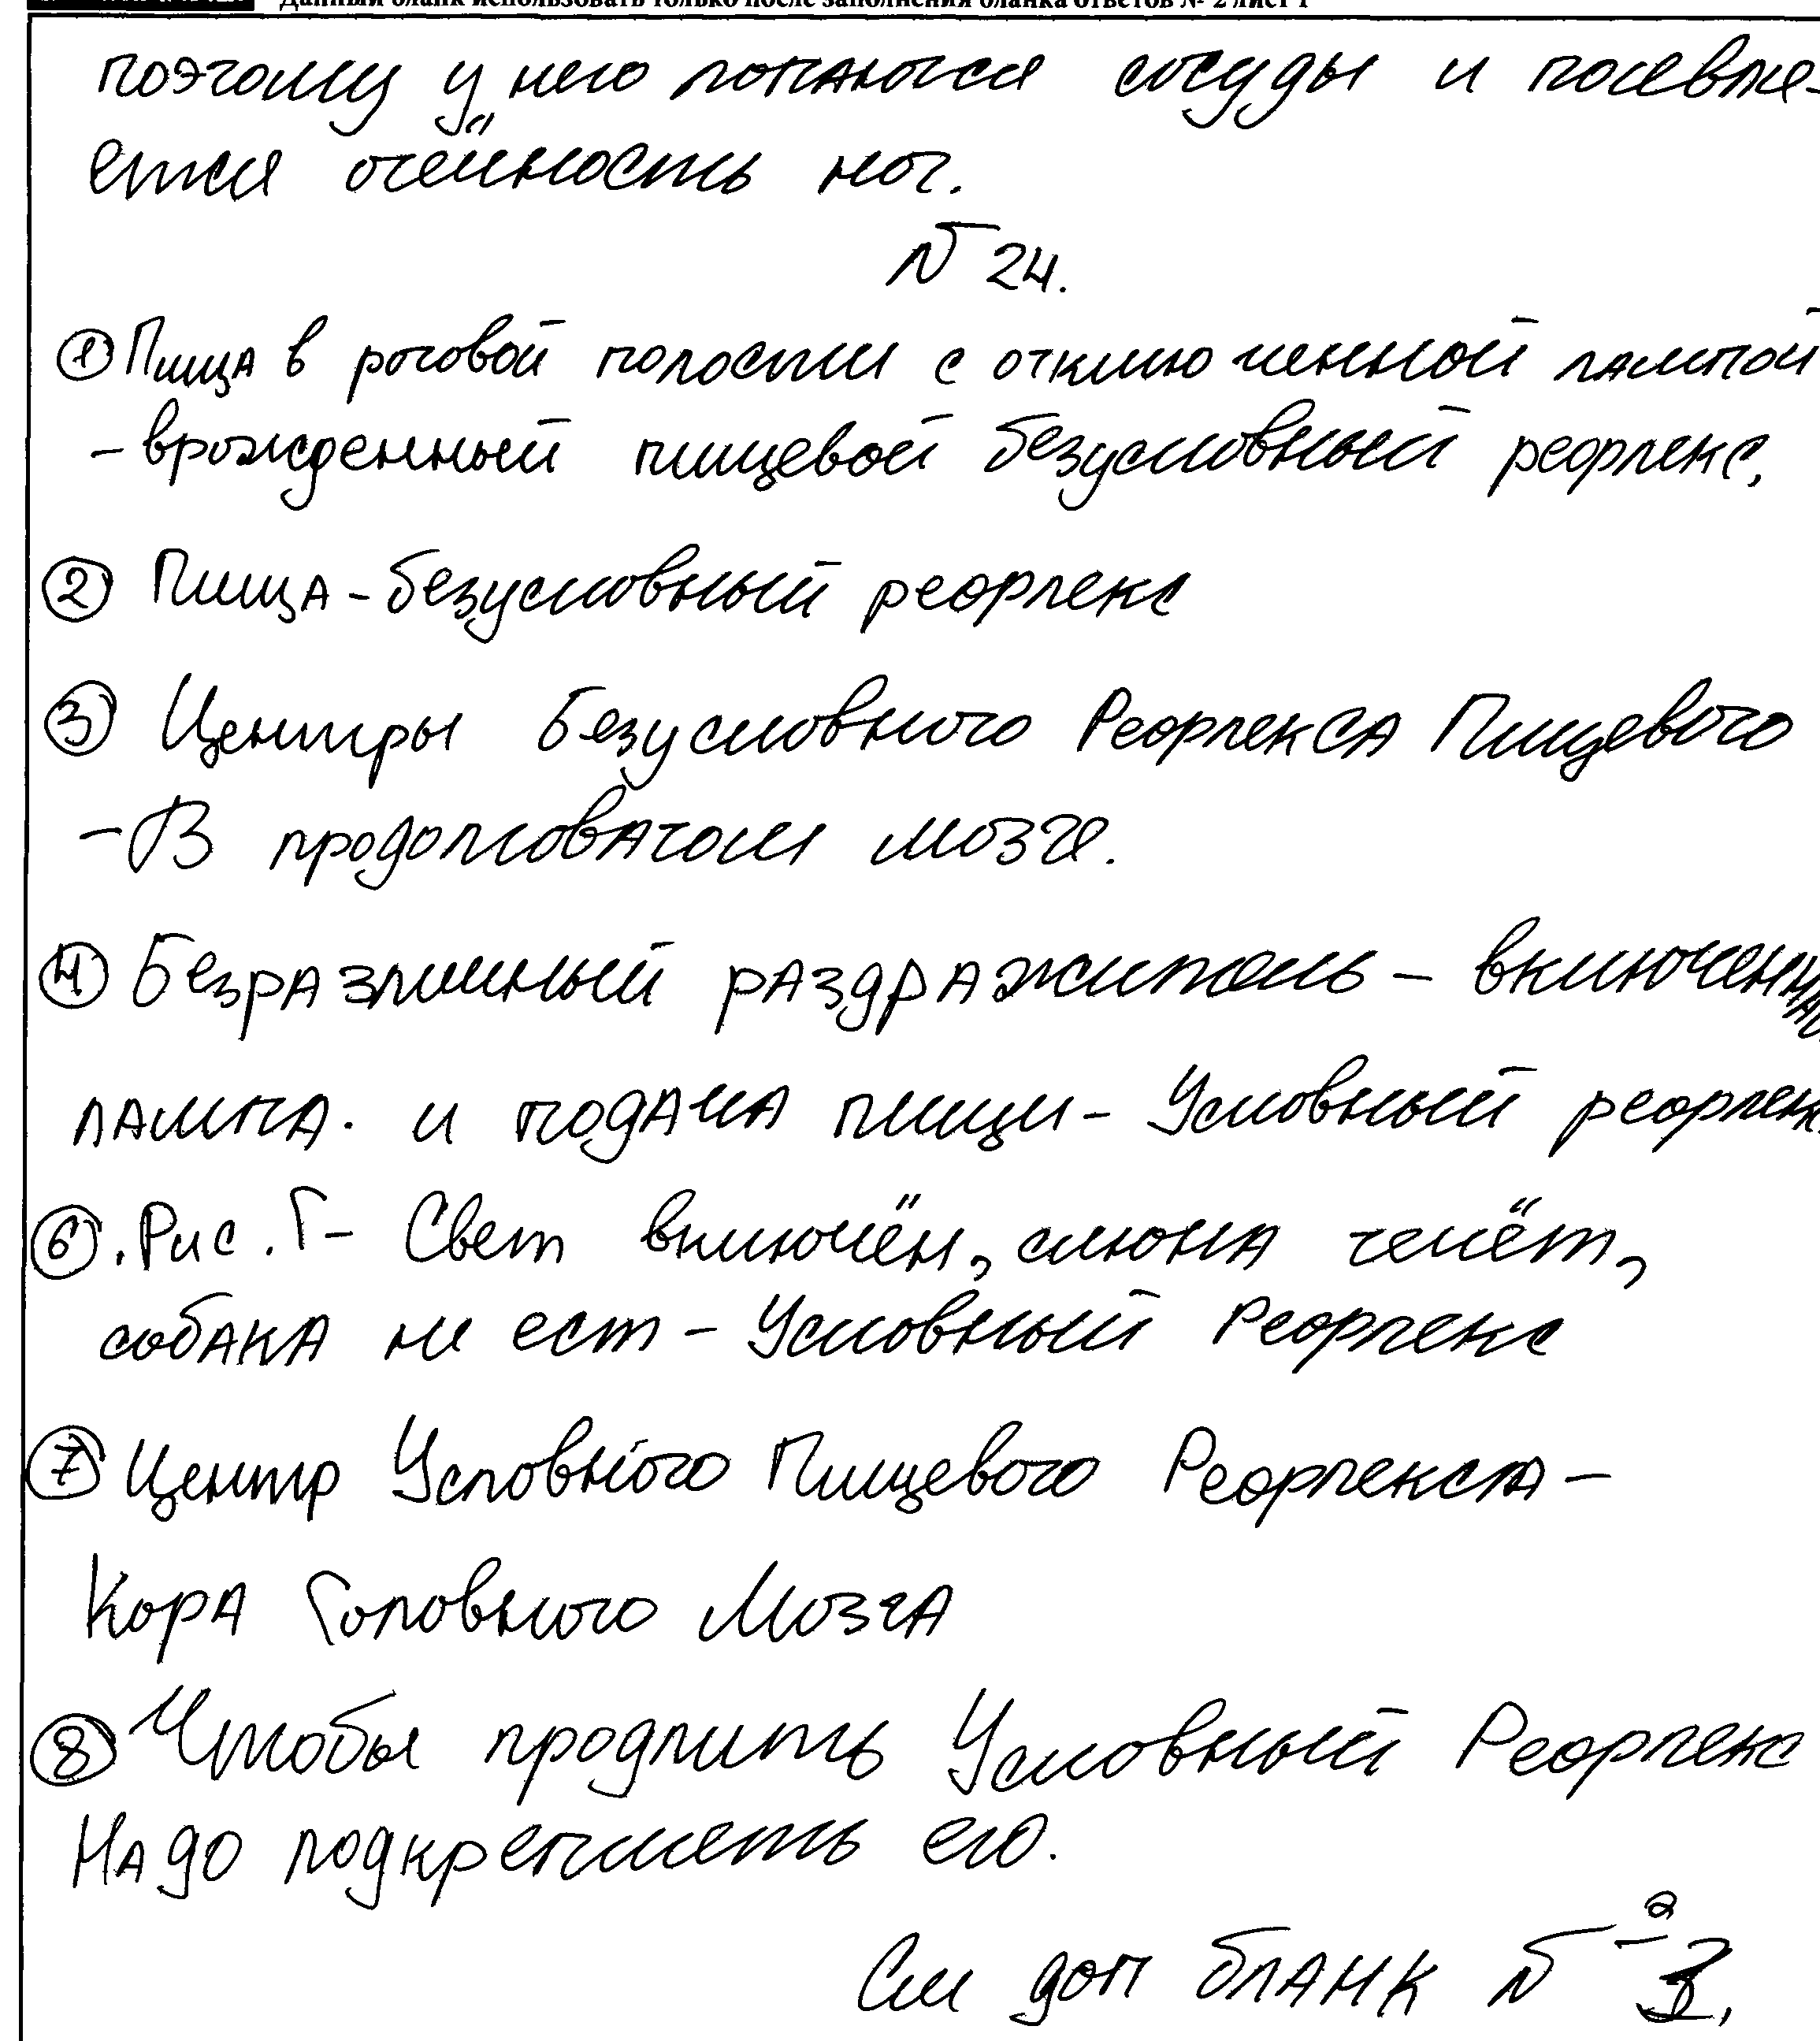 Данный бланк использовать только после заполнения бланка ответов № 2 лист 1
поэтому у него лопаются сосуды и появля-
ется отёчность ног.
№ 24.
① Пища в ротовой полости с отключенной лампой
- врожденный пищевой безусловный рефлекс.
② Пища - безусловный рефлекс
③ Центры Безусловного Рефлекса Пищевого
- В продолговатом мозге.
④ Безразличный раздражитель -
лампа. и подача пищи - Условный рефлекс
⑥. Рис. Г - Свет включён, слюна течёт,
собака не ест - Условный Рефлекс
⑦ Центр Условного Пищевого Рефлекса -
Кора Головного Мозга
⑧ Чтобы продлить Условный Рефлекс
Надо подкреплять его.
См доп бланк № 2